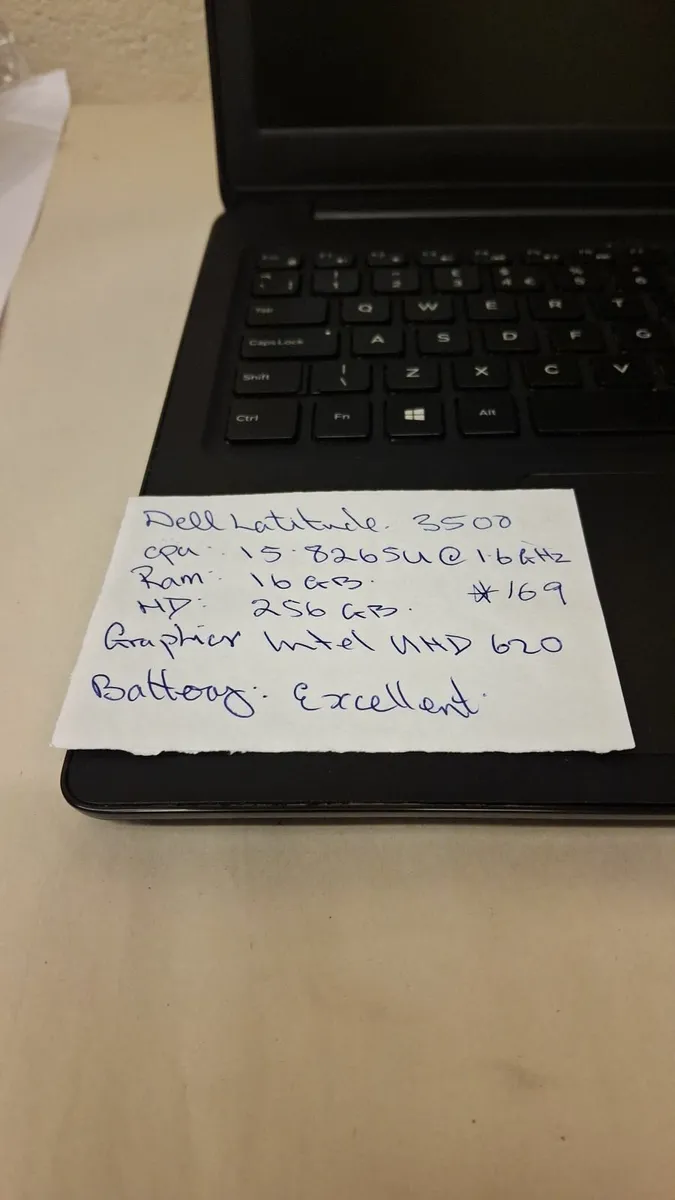 Esc F1 F2 F3 F4
! " £ $ € % ^
1 2 3 4 5 6
Tab Q W E R T
Caps Lock A S D F G
Shift | \ Z X C V
Ctrl Fn Alt
Dell Latitude. 3500
cpu: i5.8265U @ 1.6 GHz
Ram: 16 GB.
*169
HD: 256 GB.
Graphics Intel UHD 620
Battery: Excellent.